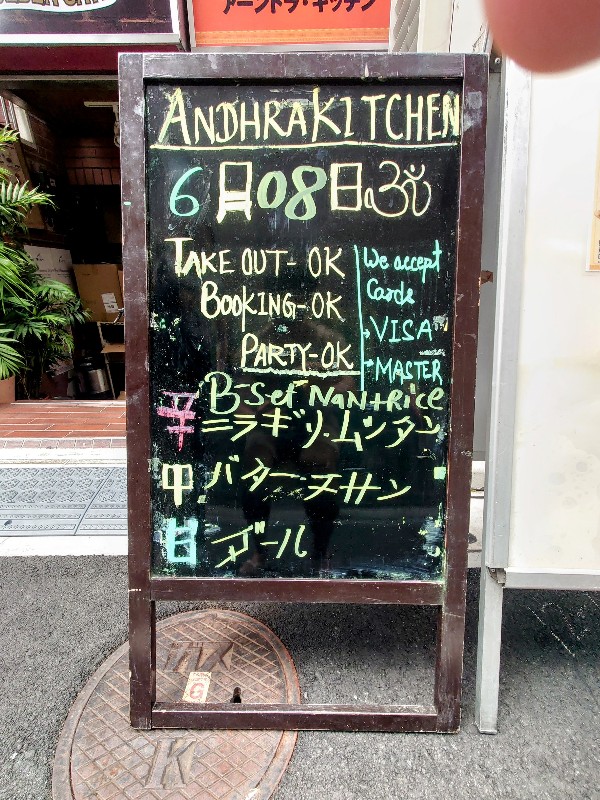 アーンドラ・キッチン
ANDHRA KITCHEN
6月08日
TAKE OUT- OK
BOOKING-OK
PARTY-OK
We accept
Cards
VISA
MASTER
B-Set Nan+Rice
辛 ニラギリ.ムッタン
中 バター.チキン
甘 ダール
ガス
G
K